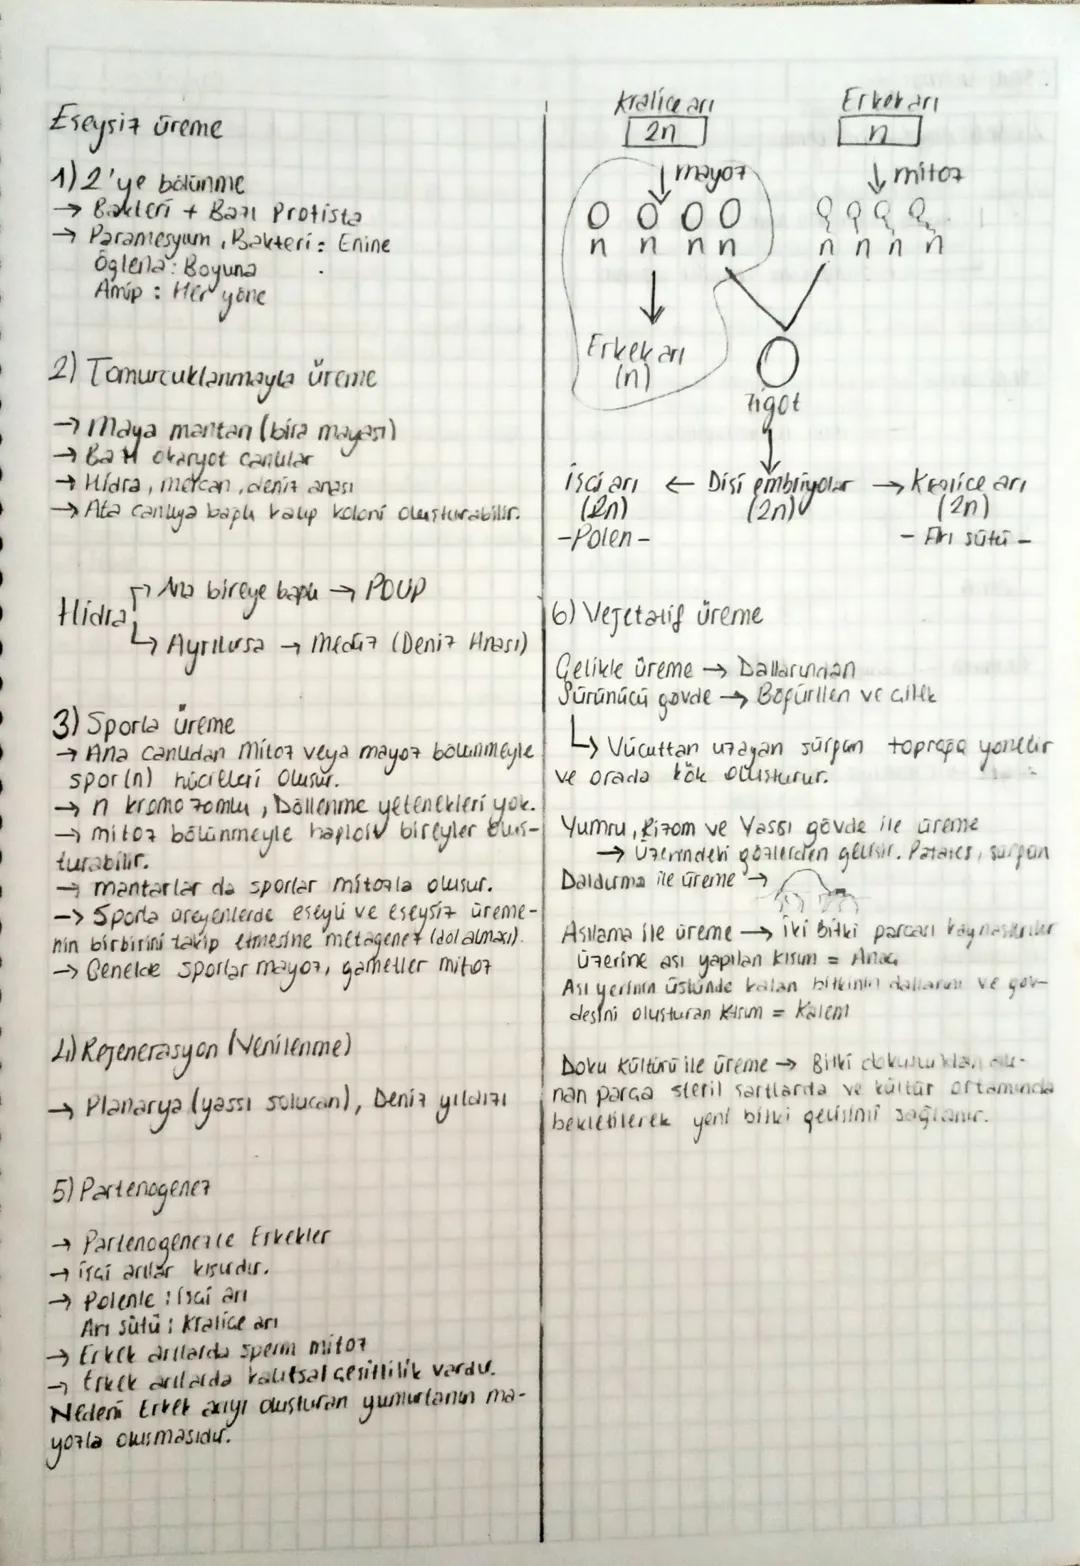 Eseysiz üreme
1) 2'ye bölünme
→ Bakteri + Bazı Protista
→ Paramesyum, Bakteri: Enine
Öglena: Boyuna
Amip: Her yöne
2) Tomurcuklanmayla üreme
→ Maya mantarı (bira mayası)
→ Bazı ökaryot canlılar
→ Hidra, mercan, deniz anası
→ Ata canlıya bağlı kalıp koloni oluşturabilir.
Hidra
→ Ana bireye bağlı → POLİP
→ Ayrılırsa → Medüz (Deniz Anası)
3) Sporla üreme
→ Ana canlıdan mitoz veya mayoz bölünmeyle
spor (n) hücreleri oluşur.
→ n kromozomlu, Döllenme yetenekleri yok.
→ mitoz bölünmeyle haploit bireyler oluş-
turabilir.
→ mantarlar da sporlar mitozla oluşur.
→ Sporla üreyenlerde eşeyli ve eşeysiz üreme-
nin birbirini takip etmesine metagenez (döl almaşı).
→ Genelde sporlar mayoz, gametler mitoz
4) Rejenerasyon (Yenilenme)
→ Planarya (yassı solucan), Deniz yıldızı
5) Partenogenez
→ Partenogenezle Erkekler
→ işçi arılar kısırdır.
→ Polenle: İşçi arı
Arı sütü: Kraliçe arı
→ Erkek arılarda sperm mitoz
→ Erkek arılarda kalıtsal çeşitlilik vardır.
Nedeni Erkek arıyı oluşturan yumurtanın ma-
yozla oluşmasıdır.
Kraliçe arı Erkek arı
2n n
mayoz mitoz
n n n n n n n n
Erkek arı
(n)
zigot
İşçi arı ← Dişi embriyolar → Kraliçe arı
(2n) (2n) (2n)
-Polen- - Arı sütü -
6) Vejetatif üreme
Çelikle üreme → Dallarından
Sürünücü gövde → Böğürtlen ve çilek
→ Vücuttan uzayan sürgün toprağa yönelir
ve orada kök oluşturur.
Yumru, Rizom ve Yassı gövde ile üreme
→ üzerindeki gözlerden gelişir. Patates, sürgün
Daldırma ile üreme →
Aşılama ile üreme → iki bitki parçası kaynaştırılır
üzerine aşı yapılan kısım = Anaç
Aşı yerinin üstünde kalan bitkinin dallarını ve göv-
desini oluşturan kısım = Kalem
Doku Kültürü ile üreme → Bitki dokusundan alı-
nan parça steril şartlarda ve kültür ortamında
bekletilerek yeni bitki gelişimi sağlanır.